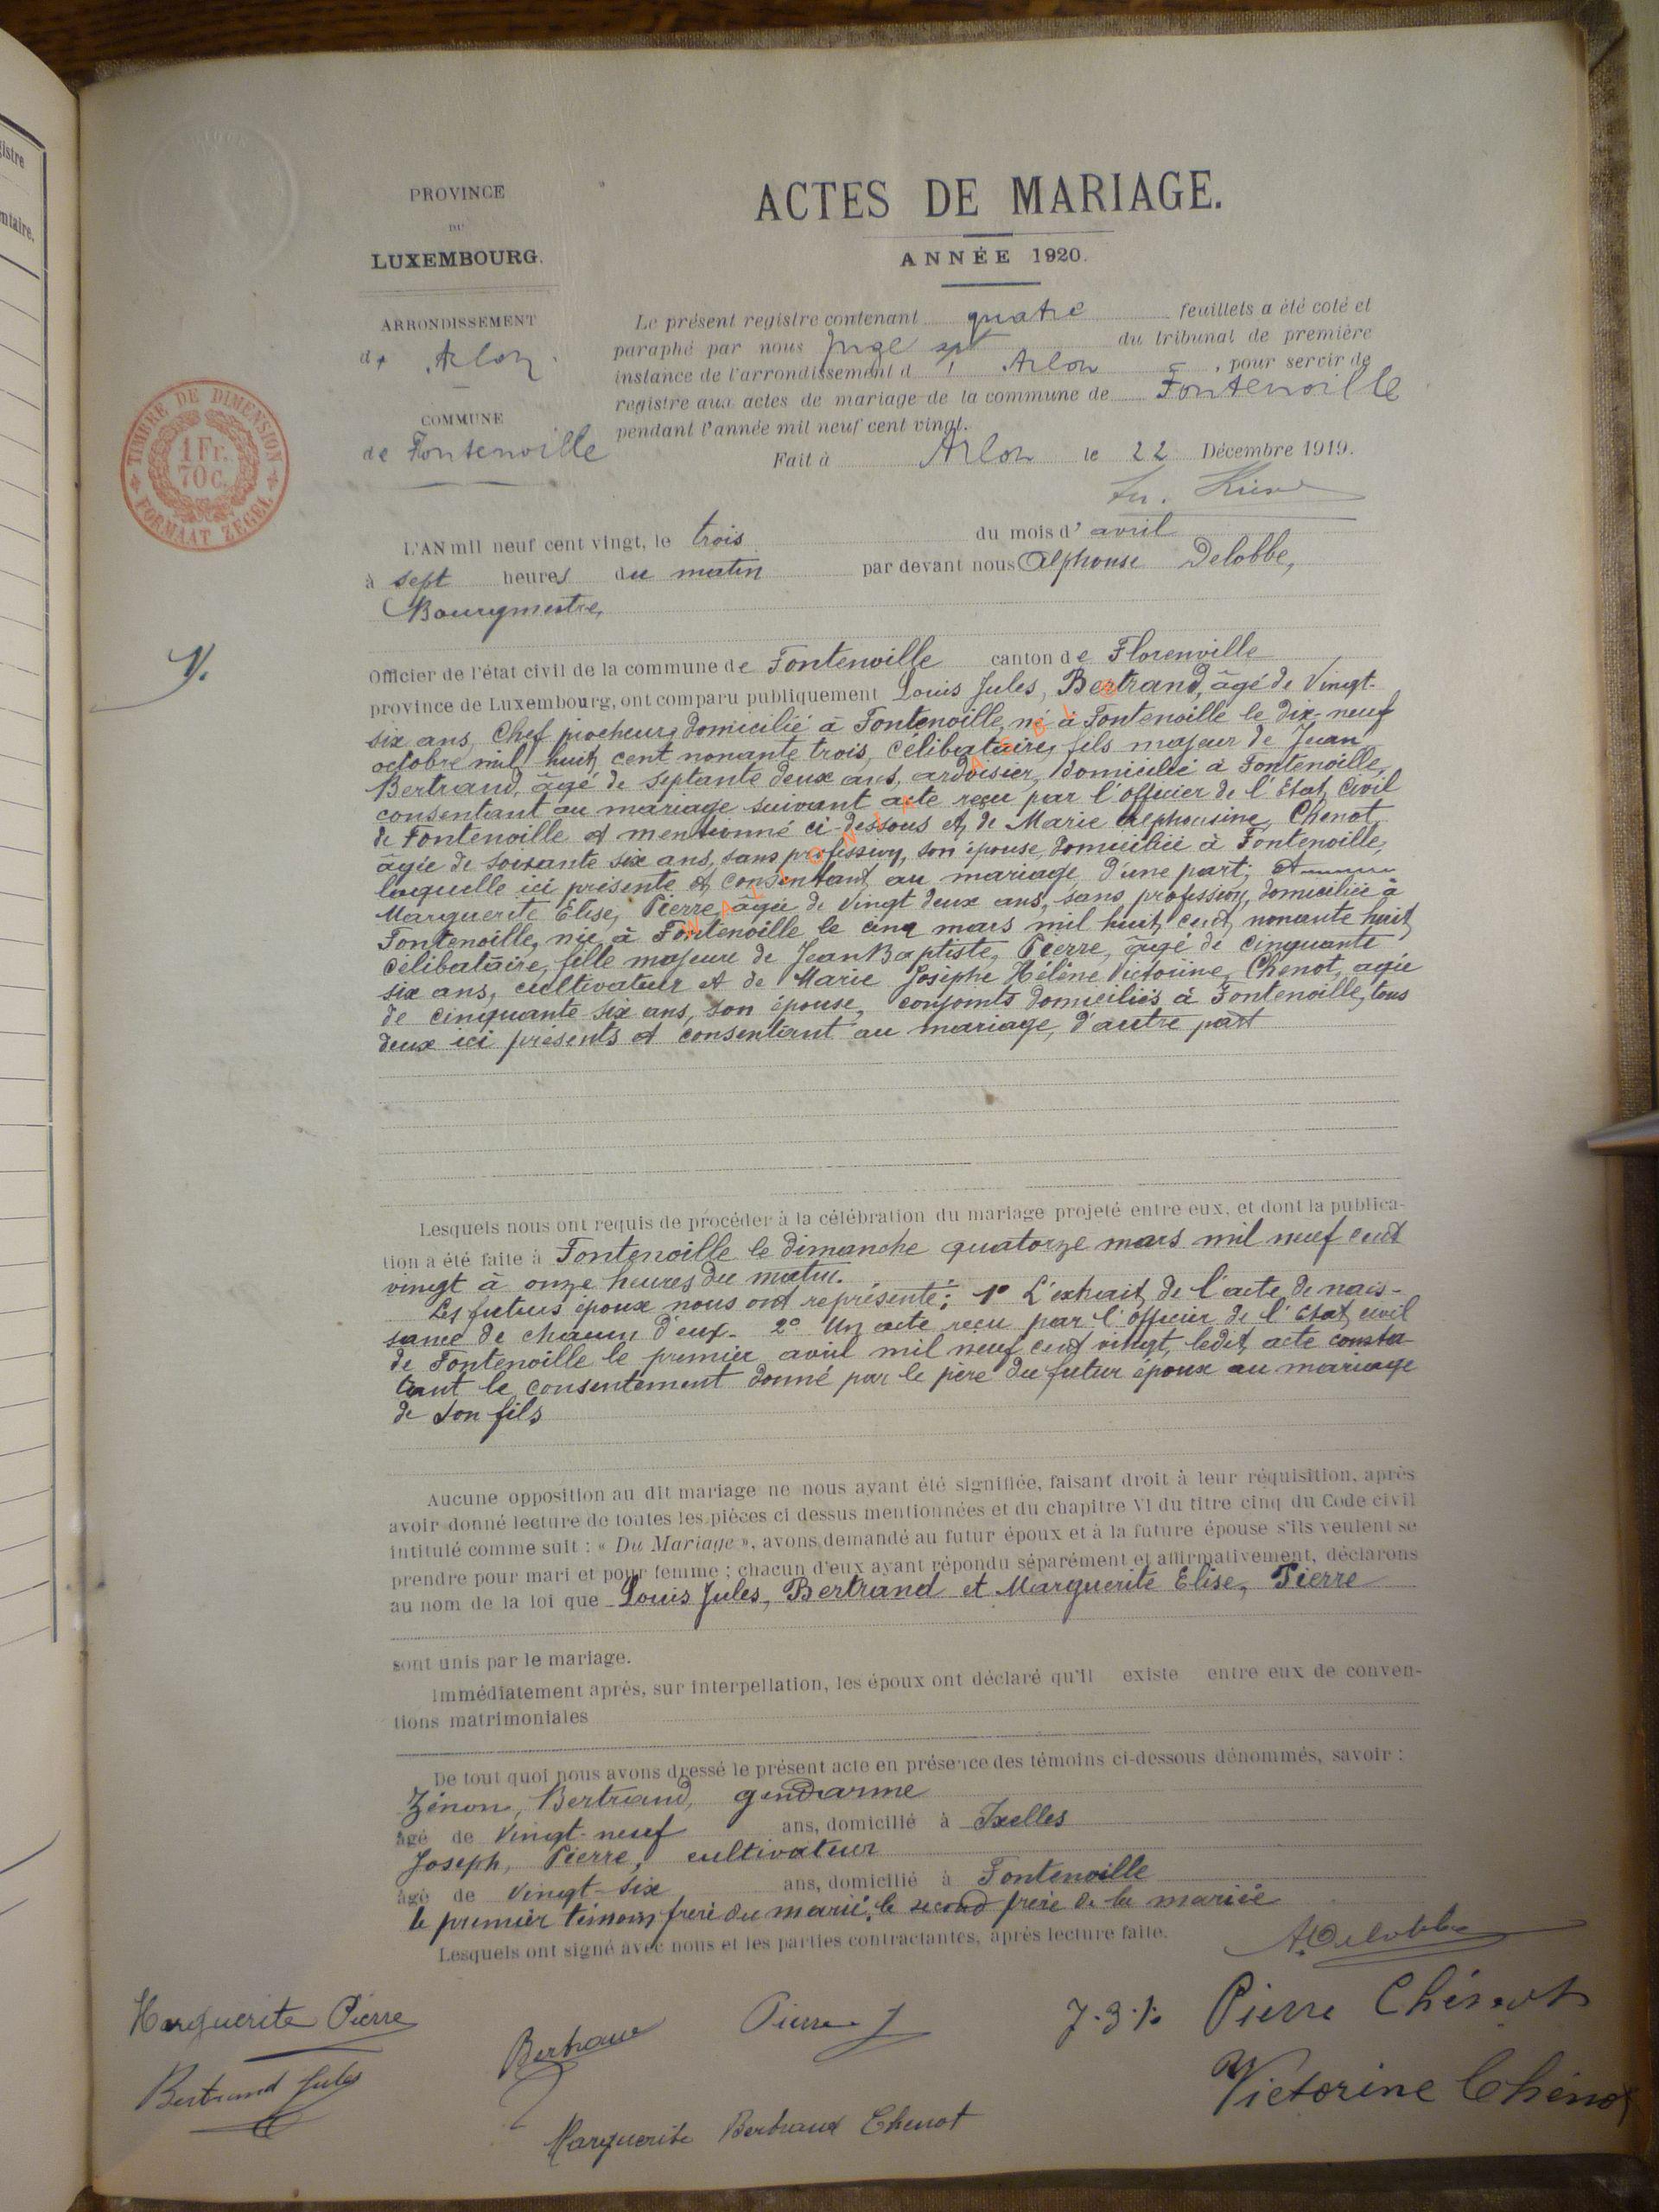 gistre
ntaire.
PROVINCE
DU
LUXEMBOURG.
ARRONDISSEMENT
d' Arlon.
COMMUNE
de Fontenoille
TIMBRE DE DIMENSION
1 Fr.
70 C.
FORMAAT ZEGEL
ACTES DE MARIAGE.
ANNÉE 1920.
Le présent registre contenant quatre feuillets a été coté et
paraphé par nous Juge spt du tribunal de première
instance de l'arrondissement d' Arlon, pour servir de
registre aux actes de mariage de la commune de Fontenoille
pendant l'année mil neuf cent vingt.
Fait à Arlon le 22 Décembre 1919.
L'AN mil neuf cent vingt, le trois du mois d' avril
à sept heures du matin par devant nous Alphonse Delobbe,
Bourgmestre,
Officier de l'état civil de la commune de Fontenoille canton de Florenville
province de Luxembourg, ont comparu publiquement Louis Jules, Bertrand, âgé de Vingt-
six ans, Chef piocheur, domicilié à Fontenoille, né à Fontenoille le dix-neuf
octobre mil huit cent nonante trois, célibataire, fils majeur de Jean
Bertrand, âgé de septante deux ans, ardoisier, domicilié à Fontenoille,
consentant au mariage suivant acte reçu par l'officier de l'État Civil
de Fontenoille et mentionné ci-dessous et de Marie Alphonsine, Chenot,
âgée de soixante six ans, sans profession, son épouse, domiciliée à Fontenoille,
laquelle ici présente et consentant au mariage, d'une part; Et
Marguerite Elise, Pierre, âgée de vingt deux ans, sans profession, domiciliée à
Fontenoille, née à Fontenoille le cinq mars mil huit cent nonante huit,
célibataire, fille majeure de Jean Baptiste, Pierre, âgé de cinquante
six ans, cultivateur et de Marie Josèphe Hélène Victorine, Chenot, agée
de cinquante six ans, son épouse, conjoints domiciliés à Fontenoille, tous
deux ici présents et consentant au mariage, d'autre part
Lesquels nous ont requis de procéder à la célébration du mariage projeté entre eux, et dont la publica-
tion a été faite à Fontenoille le dimanche quatorze mars mil neuf cent
vingt à onze heures du matin.
Les futurs époux nous ont représenté: 1° L'extrait de l'acte de nais-
sance de chacun d'eux. 2° Un acte reçu par l'officier de l'État civil
de Fontenoille le premier avril mil neuf cent vingt, ledit acte consta
tant le consentement donné par le père du futur époux au mariage
de son fils
Aucune opposition au dit mariage ne nous ayant été signifiée, faisant droit à leur réquisition, après
avoir donné lecture de toutes les pièces ci dessus mentionnées et du chapitre VI du titre cinq du Code civil
intitulé comme suit : « Du Mariage », avons demandé au futur époux et à la future épouse s'ils veulent se
prendre pour mari et pour femme ; chacun d'eux ayant répondu séparément et affirmativement, déclarons
au nom de la loi que Louis Jules, Bertrand et Marguerite Elise, Pierre
sont unis par le mariage.
Immédiatement après, sur interpellation, les époux ont déclaré qu'il existe entre eux de conven-
tions matrimoniales
De tout quoi nous avons dressé le présent acte en présence des témoins ci-dessous dénommés, savoir :
Zénon, Bertrand, gendarme
âgé de vingt-neuf ans, domicilié à Ixelles
Joseph, Pierre, cultivateur
âgé de vingt-six ans, domicilié à Fontenoille
le premier témoin frère du marié, le second frère de la mariée
Lesquels ont signé avec nous et les parties contractantes, après lecture faite.
A. Delobbe
Marguerite Pierre
Bertrand
Pierre J
J.B. Pierre Chénot
Bertrand Jules
Victorine Chénot
Marguerite Bertrand Chenot